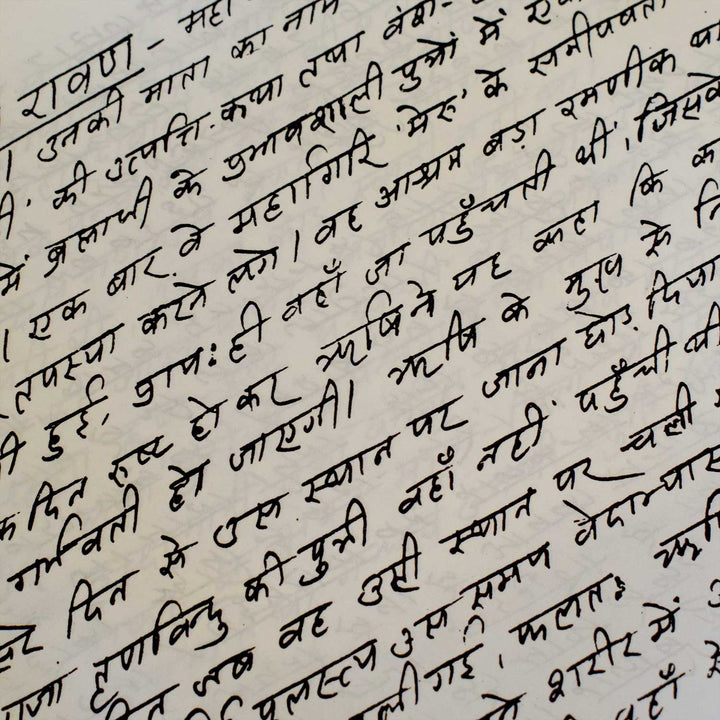 रावण - महा
। उनकी माता का नाम
की उत्पत्ति कथा तथा वंश-
में ब्रह्माजी के प्रभावशाली पुत्रों में
। एक बार वे महागिरि 'मेरु' के समीपवर्ती
तपस्या करने लगे। वह आश्रम बड़ा रमणीक था
हुई, प्रायः ही वहाँ जा पहुँचती थीं, जिसके
दिन रुष्ट हो कर ऋषि ने यह कहा कि
गर्भवती हो जाएगी। ऋषि के मुख से
दिन से उस स्थान पर जाना छोड़ दिया
तृणबिन्दु की पुत्री वहाँ नहीं पहुँची थी
जब वह उसी स्थान पर चली
पुलस्त्य उस समय वेदाभ्यास
गई, फलतः ऋषि
शरीर में
वहाँ से